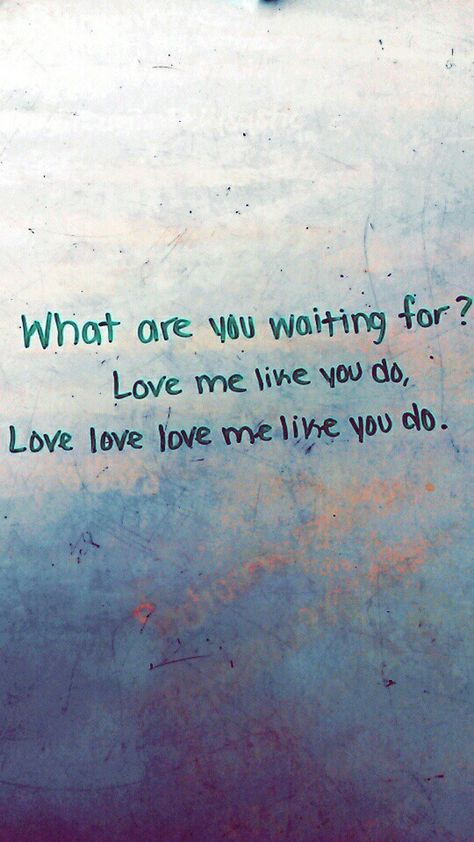 What are you waiting for?
Love me like you do,
Love love love me like you do.